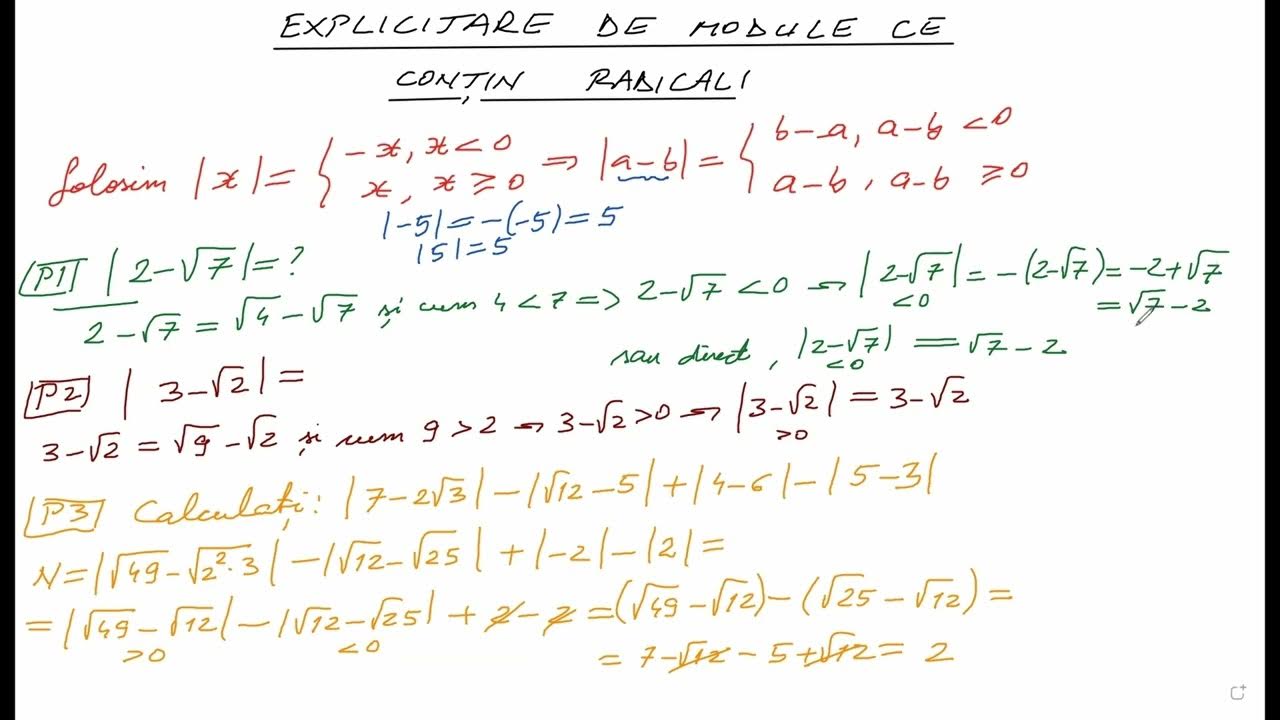 EXPLICITARE DE MODULE CE
CONȚIN RADICALI
folosim |x| = { -x, x < 0 ; x, x ≥ 0 ⇒ |a-b| = { b-a, a-b < 0 ; a-b, a-b ≥ 0
|-5| = -(-5) = 5
|5| = 5
P1) |2-√7| = ?
2-√7 = √4-√7 și cum 4 < 7 => 2-√7 < 0 ⇒ |2-√7| = -(2-√7) = -2+√7
<0
= √7-2
sau direct, |2-√7| = √7-2
<0
P2) |3-√2| =
3-√2 = √9-√2 și cum 9 > 2 ⇒ 3-√2 > 0 ⇒ |3-√2| = 3-√2
>0
P3) Calculați: |7-2√3| - |√12-5| + |4-6| - |5-3|
N = |√49-√2²·3| - |√12-√25| + |-2| - |2| =
= |√49-√12| - |√12-√25| + 2 - 2 = (√49-√12) - (√25-√12) =
>0 <0
= 7-√12-5+√12 = 2